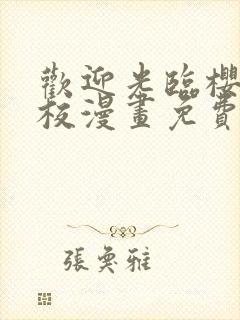 歡迎光臨櫻
板漫畫免費
張奐雅